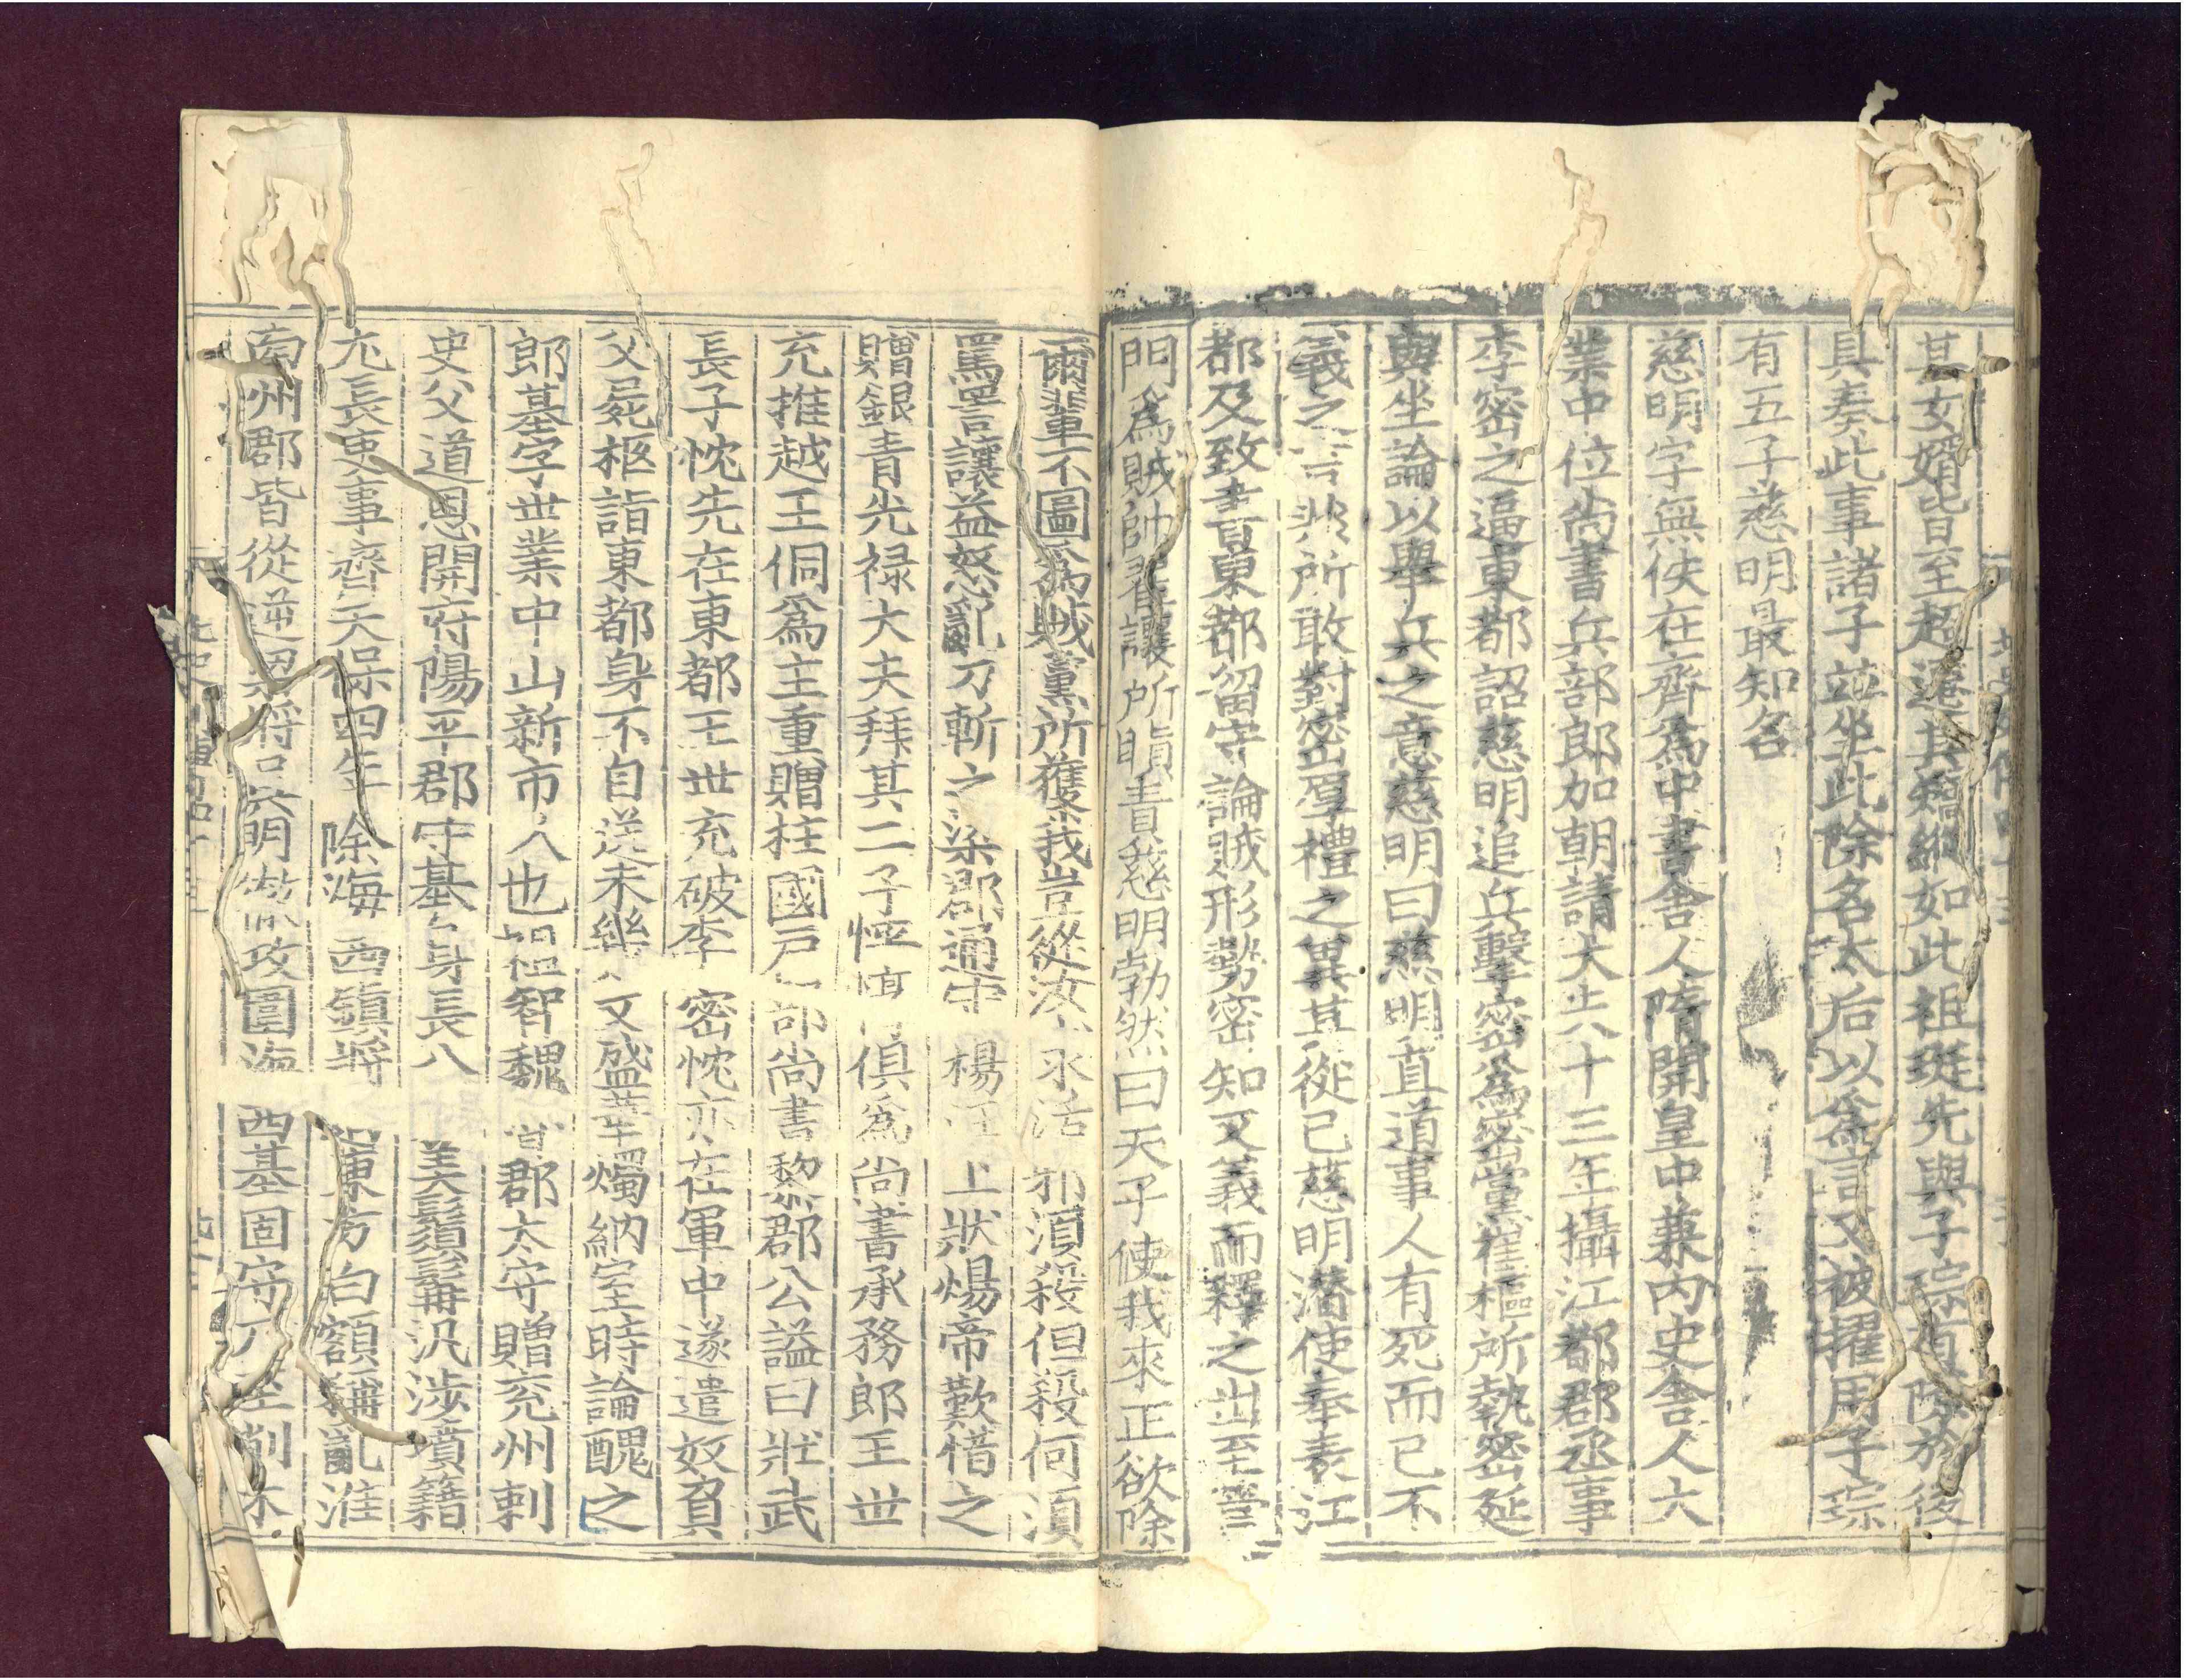 其女婿皆至超遷其矯縱如此祖珽先與子琮有隙於後
具奏此事諸子並坐此除名太后以爲言又被擢用子琮
有五子慈明最知名
慈明字無佚在齊爲中書舍人隋開皇中兼内史舍人六
業中位尚書兵部郎加朝請大夫十三年攝江都郡丞事
李密之逼東都詔慈明追兵擊密爲密黨崔樞所執密延
與坐論以舉兵之意慈明曰慈明直道事人有死而已不
義之言非所敢對密厚禮之冀其從己慈明潜使奉表江
都及致書東都留守論賊形勢密知又義而釋之出至營
門爲賊帥翟讓所瞋責慈明勃然曰天子使我來正欲除
爾輩不圖爲賊黨所獲我豈從汝求活邪須殺但殺何須
罵詈讓益怒亂刀斬之梁郡通守楊汪上狀煬帝歎惜之
贈銀青光禄大夫拜其二子惇俱爲尚書承務郎王世
充推越王侗爲主重贈柱國戸部尚書黎郡公謚曰壯武
長子忱先在東都王世充破李密忱亦在軍中遂遣奴負
父屍柩詣東都身不自送未幾又盛華燭納室時論醜之
郎基字世業中山新市人也祖智魏郡太守贈兖州刺
史父道恩開府陽平郡守基身長八美鬚髯汎涉墳籍
尢長吏事齊天保四年除海西鎮將東方白額稱亂淮
南州郡皆從逆梁將吳明徹攻圍海西基固守乃至削木